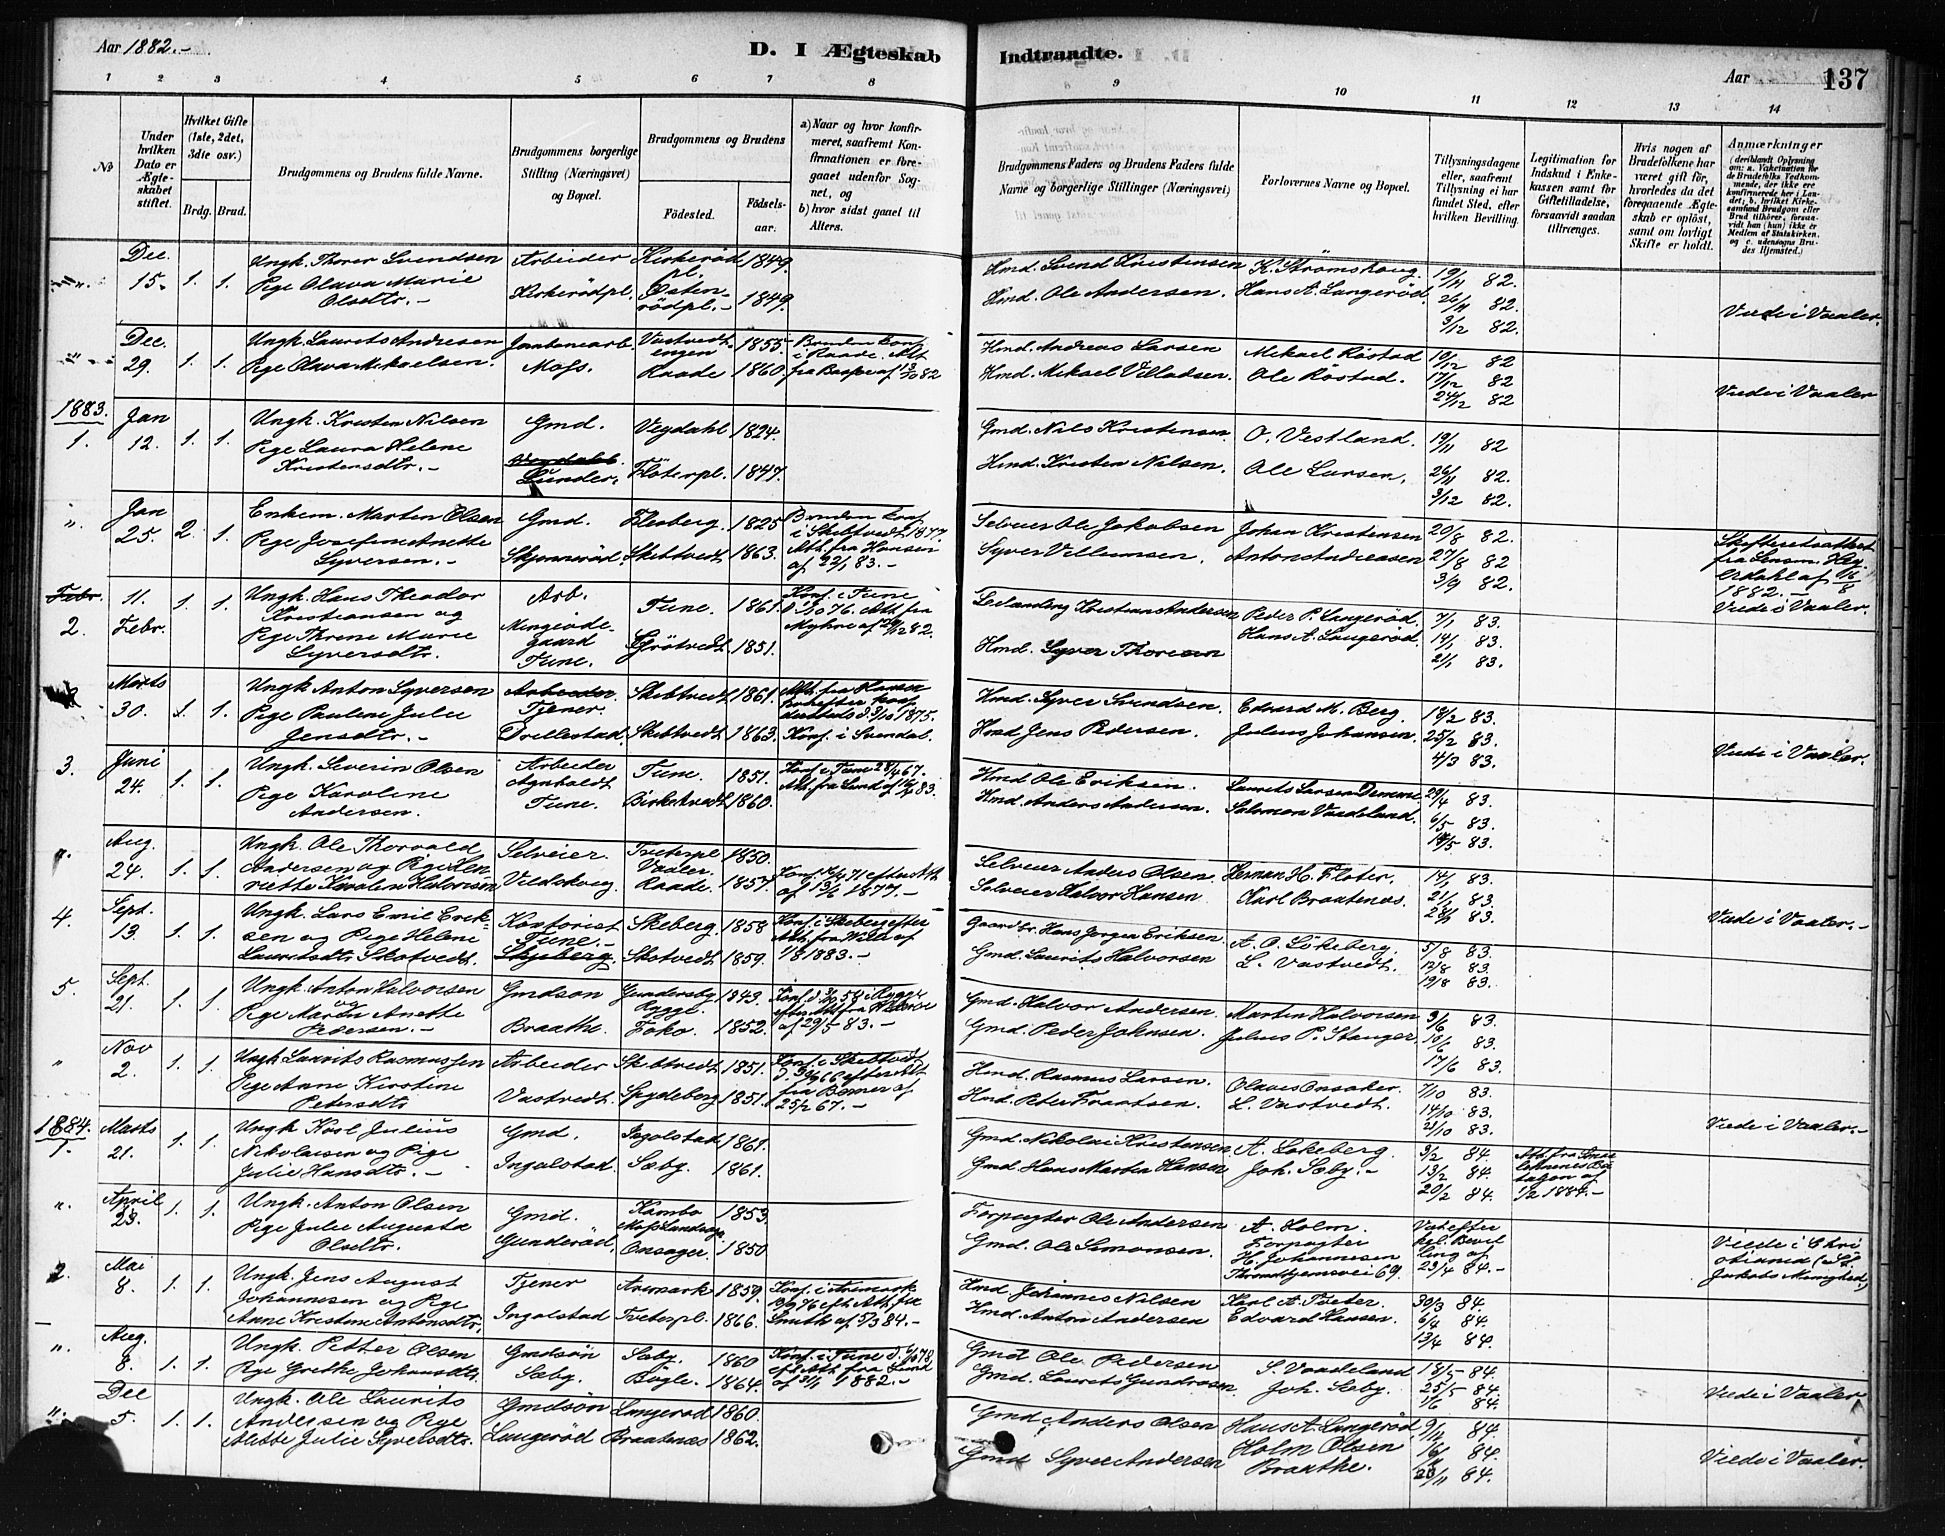 Aar 1882.-
D. I Ægteskab
Indtraadte.
Aar
137
1 2 3 4 5 6 7 8
9 10 11 12 13 14
No
Under hvilken Dato er Ægteskabet stiftet.
Hvilket Gifte (1ste, 2det, 3die osv.)
Brdg. Brud.
Brudgommens og Brudens fulde Navne.
Brudgommens borgerlige Stilling (Næringsvei) og Bopæl.
Brudgommens og Brudens
Födested.
Födselsaar.
a) Naar og hvor konfirmeret, saafremt Konfirmationen er foregaaet udenfor Sognet, og
b) hvor sidst gaaet til Alters.
Brudgommens Faders og Brudens Faders fulde Navne og borgerlige Stillinger (Næringsvei)
Forlovernes Navne og Bopæl.
Tillysningsdagene eller, saafremt Tillysning ei har fundet Sted, efter hvilken Bevilling.
Legitimation for Indskud i Enkekassen samt for Giftetilladelse, forsaavidt saadan tiltrænges.
Hvis nogen af Brudefolkene har været gift för, hvorledes da det foregaaende Ægteskab er oplöst, samt om lovligt Skifte er holdt.
Anmærkninger
Dec. 15. 1. 1. Ungk. Thorer Svendsen Arbeider Kirkeröd pl. 1849.
Pige Olava Marie Olsdtr. - Kirkerödpl. Östenrödpl. - 1849.
Hmd. Svend Kristensen K. Strömshaug. 19/11 82.
Hmd. Ole Andersen. Hans A. Langeröd. 26/11 82.
3/12 82.
Viede i Vaaler.
Dec. 29. 1. 1. Ungk. Laurits Andresen Jernbanearb. Vastvedtengen 1855
Pige Olava Mikaelsen. Moss. Raade 1860.
Bruden konf. i Raade. Att. fra
Hmd. Andreas Larsen Mikael Röstad 10/12 82
Hmd. Mikael Villadsen. Ole Röstad. 17/12 82
24/12 82
Viede i Vaaler
1883.
1. Jan 12. 1. 1. Ungk. Kristen Nilsen Gmd. Vejdahl 1824.
Pige Laura Helene Kristensdtr. - Lunder. Flöterpl. 1847.
Gmd. Nils Kristensen O. Vestland. 19/11 82
Hmd. Kristen Nilsen. Ole Larsen. 26/11 82.
3/12 82.
". Jan 25. 2. 1. Enkem. Marten Olsen Gmd. Flesberg. 1825
Pige Josefine Anette Syversen. - Skjenneröd. Skibtvedt 1863.
Bruden konf. i Skibtvedt 1877. Att. fra Hansen af 22/1 83. -
Selveier Ole Jakobsen Johan Kristensen 20/8 82.
Syver Villumsen. Anton Andreasen 27/8 82
3/9 82.
Skifteretsattest fra Lensm. Ordahl af 1882. -
Febr.
2. 11. Febr. 1. 1. Ungk. Hans Theodor Kristiansen og Arb. Tune. 1861.
Pige Threne Marie Syversdtr. Tune. Grötvedt 1851.
Konf. i Tune Att. fra Myhre af 29/12 82.
Leilænding Kristian Andersen Peder P. Langeröd. 7/1 83.
Hmd. Syver Thoresen Hans A. Langeröd. 14/1 83.
21/1 83.
Viede i Vaaler.
Marts 30. 1. 1. Ungk. Anton Syversen Arbeider Tjener. Skibtvedt 1861.
Pige Pauline Julie Jensdtr. - Trællestad. Skibtvedt 1863.
Att. fra Hansen 1875. Konf. i Svendal.
Hmd. Syver Svendsen. Edvard M. Berg. 18/2 83.
Hmd Jens Pedersen. Julius Johansen. 25/2 83.
4/3 83.
Viede i Vaaler.
3. Juni 24. 1. 1. Ungk. Severin Olsen Arbeider Tune. 1851.
Pige Karoline Andersen. Tune. Birketvedt 1860.
Konf. i Tune 28/4 67. Att. fra Lund af 83.
Hmd Ole Eriksen. Laurits Larsen 29/4 83.
Hmd. Anders Andersen. Salomon Vaadeland. 6/5 83.
83.
Aug. 24. 1. 1. Ungk. Ole Thorvald Andersen og Pige Henriette Karolin Halvorsen Selveier. Tveterpl Vaaler 1850.
Raade. 1857.
af 13/6 1877. -
Selveier Anders Olsen. Herman H. Floter. 14/1 83.
Selveier Halvor Hansen Karl Braatenæs. 21/1 83.
28/1 83.
Viede i Vaaler. -
4. Sept. 13. 1. 1. Ungk. Lars Emil Eriksen og Pige Helene Lauritsdtr. Skotvedt. Kontorist Tune. - Skjeberg. Skeberg. 1858
Skotvedt 1859.
Konf. i Skeberg efter Att. fra af 1/8 1883. -
Gaardbr. Hans Jørgen Eriksen. A. O. Lökeberg. 5/8 83.
Gmd. Laurits Halvorsen L. Vastvedt. 12/8 83.
19/8 83.
5. Sept. 21. 1. 1. Ungk. Anton Halvorsen og Gmdson Gundersby Rygge. 1843.
Pige Maren Anette Pedersen. - Braathe. Foko. 1852.
Konf. i Rygge af 29/5 83. -
Gmd. Halvor Andersen. Martin Halvorsen 3/6 83.
Gmd. Peder Johnsen. Julius P. Stanger. 10/6 83.
17/6 83.
" Nov 2. 1. 1. Ungk Laurits Rasmussen Arbeider Skibtvedt 1851.
Pige Anne Kirstine Petersdtr Vastvedt. Spydeberg 1851.
Konf. i Skibtvedt 66 efter Att fra af 25/2 67. -
Hmd. Rasmus Larsen. Olaves Onsaker. 7/10 83.
Hmd. Peter L. Vastvedt. 14/10 83.
21/10 83.
Viede i Vaaler. -
1884.
1. Marts 21. 1. 1. Ungk. Karl Julius Nikolaisen og Pige Julie Hansdtr. - Gmd. Ingolstad 1861.
Ingolstad. Sæby. 1861.
Gmd. Nikolai Kristensen A. Lökeberg. 3/2 84.
Gmd. Hans Martin Hansen Joh. Sæby. - 13/2 84.
20/2 84.
Att. fra 1/2 1884. -
". April 23. 1. 1. Ungk. Anton Olsen Gmd. Kambo 1853.
Pige Julie Augusta Olsdtr. Gunderöd. Onsager. 1850.
Forpagter Ole Andersen A. Holm. Forpagter
Gmd. Ole Simonsen. H. Johannesen Throndhjemsvei 69.
kgl. Bevilling af 23/4 84. -
Viede i Christiania (St. Jakobs Menighed)
2. Mai 8. 1. 1. Ungk. Jens August Johannesen og Pige Anne Kristine Antonsdtr. Tjener Aremark 1859.
Ingolstad Tveterpl. 1866.
Konf. i Aremark 76 eft. Att. fra Smith af 5/3 84. -
Hmd Johannes Nilsen Karl A. Tveter. 30/3 84.
Hmd. Anton Andersen Edvard Hansen. 6/4 84.
13/4 84.
". Aug. 8. 1. 1. Ungk. Petter Olsen Gmdsön Sæby. 1860
Pige Grethe Johansdtr. Sæby. Bögle. 1864.
Konf. i Tune 78 eft. Att. fra Lund 1882. -
Gmd Ole Pedersen S. Vaadeland 18/5 84.
Gmd. Laurits Gundrosen. Joh. Sæby. 25/5 84.
1/6 84.
Viede i Vaaler
". Dec 5. 1. 1. Ungk. Ole Laurits Andersen og Pige Julie Syversdtr. Gmdsön Langeröd 1860.
Langeröd Braatenæs 1862.
Gmd Anders Olsen Hans A. Langeröd 9/11 84.
Gmd Syver Andersen Holm Olsen Braathe. 16/11 84.
23/11 84.
Viede i Vaaler.